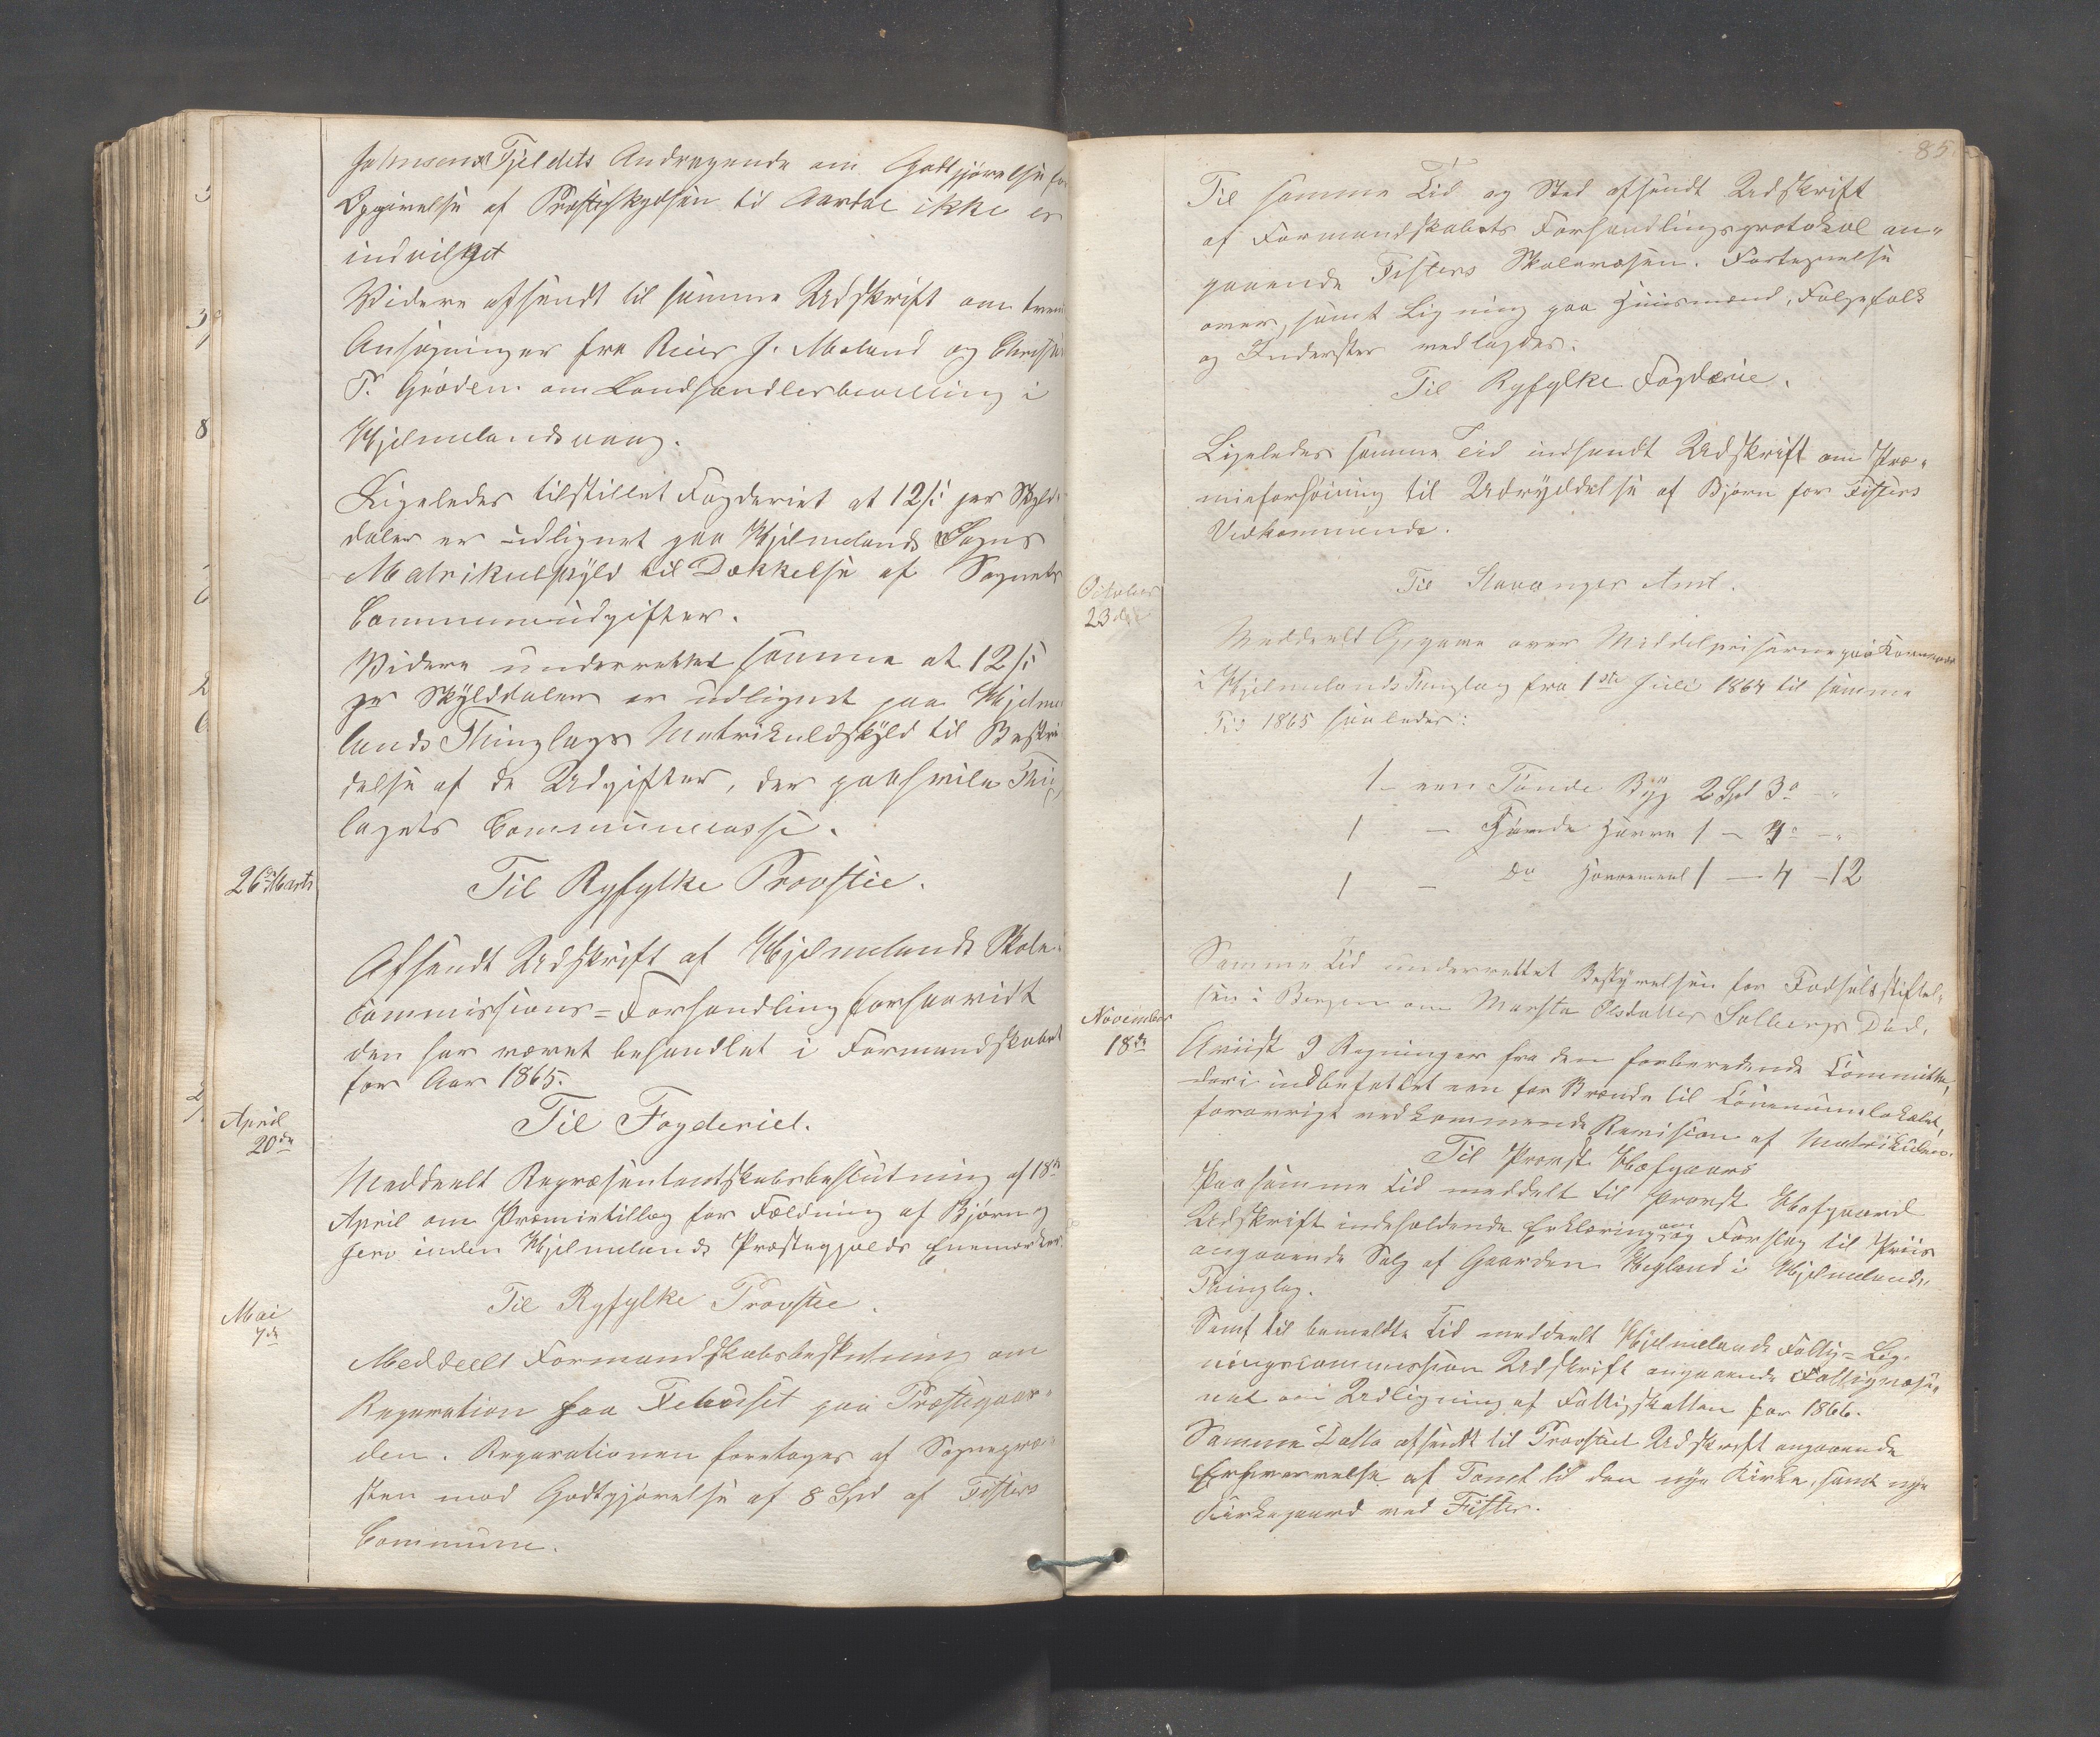 Johnsens Fjeldets Andragende om Godtgjørelse for
Opgivelse af Præsteskydsen til Aardal ikke er
indvilget
Videre afsendt til samme Udskrift om tvende
Ansøgninger fra Rier J. Meland og Christen
T. Grøden om Landhandlerbevilling i
Hjelmelandsvaag.
Ligeledes tilstillet Fogderiet at 12 ß pr Skyld-
daler er udlignet paa Hjelmelands Sogns
Matrikulskyld til Dækkelse af Sognets
Communeudgifter.
Videre underrettet samme at 12 ß
pr Skylddaler er udlignet paa Hjelme
lands Thinglags Matrikuldskyld til Bestri
delse af de Udgifter, der paahvile Thing
lagets Communecasse.
26de Marts
Til Ryfylke Provstie.
Afsendt Udskrift af Hjelmelands Skole-
commissions=Forhandling forsaavidt
den har været behandlet i Formandskabet
for Aar 1865.
April
20de
Til Fogderiet.
Meddeelt Repræsentantskabsbeslutning af 18de
April om Præmietillæg for Fældning af Bjørn og
Jerv inden Hjelmelands Præstegjælds Enemærker.
Til Ryfylke Provstie.
Mai
7de
Meddeelt Formandskabsbeslutning om
Reparation paa Fehuset paa Præstegaar-
den. Reparationen foretages af Sognepræ-
sten mod Godtgjørelse af 8 Spd af Fisters
Commune.
85
Til samme Tid og Sted afsendt Udskrift
af Formandskabets Forhandlingsprotokol an-
gaaende Fisters Skolevæsen. Fortegnelse
over, samt Ligning paa Huusmænd, Følgefolk
og Inderster vedlagdes.
Til Ryfylke Fogderie.
Ligeledes samme Tid indsendt Udskrift om Præ-
mieforhøining til Udryddelse af Bjørn for Fisters
Vedkommende.
Til Stavanger Amt.
October
23de
Meddeelt Opgave over Middelpriserne paa Kornvarer
i Hjelmelands Thinglag fra 1ste Juli 1864 til samme
Tid 1865 saaledes:
1 - een Tønde Byg 2 Spd 3 - "
1 - Tønde Havre 1 - 4 - "
1 - do Havremeel 1 - 4 - 12
Samme Tid underrettet Bestyrelsen for Fødselsstiftel-
sen i Bergen om Martha Olsdatter Solbergs Død.
November
18de
Anviist 9 Regninger fra den forberedende Committee,
deri indbefattet een for Brænde til Communelokalet,
forøvrigt vedkommende Revision af Matrikulen.
Til Provst Hofgaard
Paa samme Tid meddelt til Provst Hofgaard
Udskrift indeholdende Erklæring om og Forslag til Priis
angaaende Salg af Gaarden Hegland i Hjelmelands
Thinglag.
Samt til bemeldte Tid meddeelt Hjelmelands Fattig=Lig-
ningscommission Udskrift angaaende Fattigvæse-
net om Udligning af Fattigskatten for 1866.
Samme Datto afsendt til Provstiet Udskrift angaaende
Erhvervelse af Tomt til den nye Kirke, samt nye
Kirkegaard ved Fister.